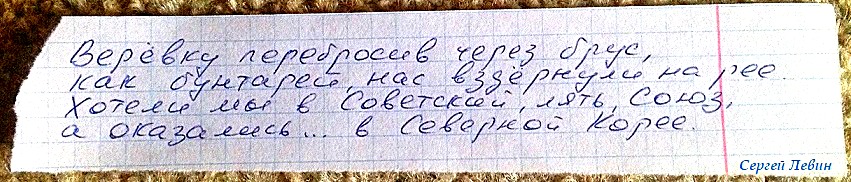 Верёвку перебросив через брус,
как бунтарей, нас вздёрнули на рее.
Хотели мы в Советский, лять, Союз,
а оказались... в Северной Корее.
Сергей Левин